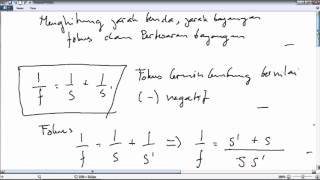 Menghitung jarak benda, jarak bayangan
fokus dan Perbesaran bayangan
1/f = 1/s + 1/s'
Fokus cermin cembung bernilai
(-) negatif
Fokus
1/f = 1/s + 1/s' => 1/f = s' + s / s s'